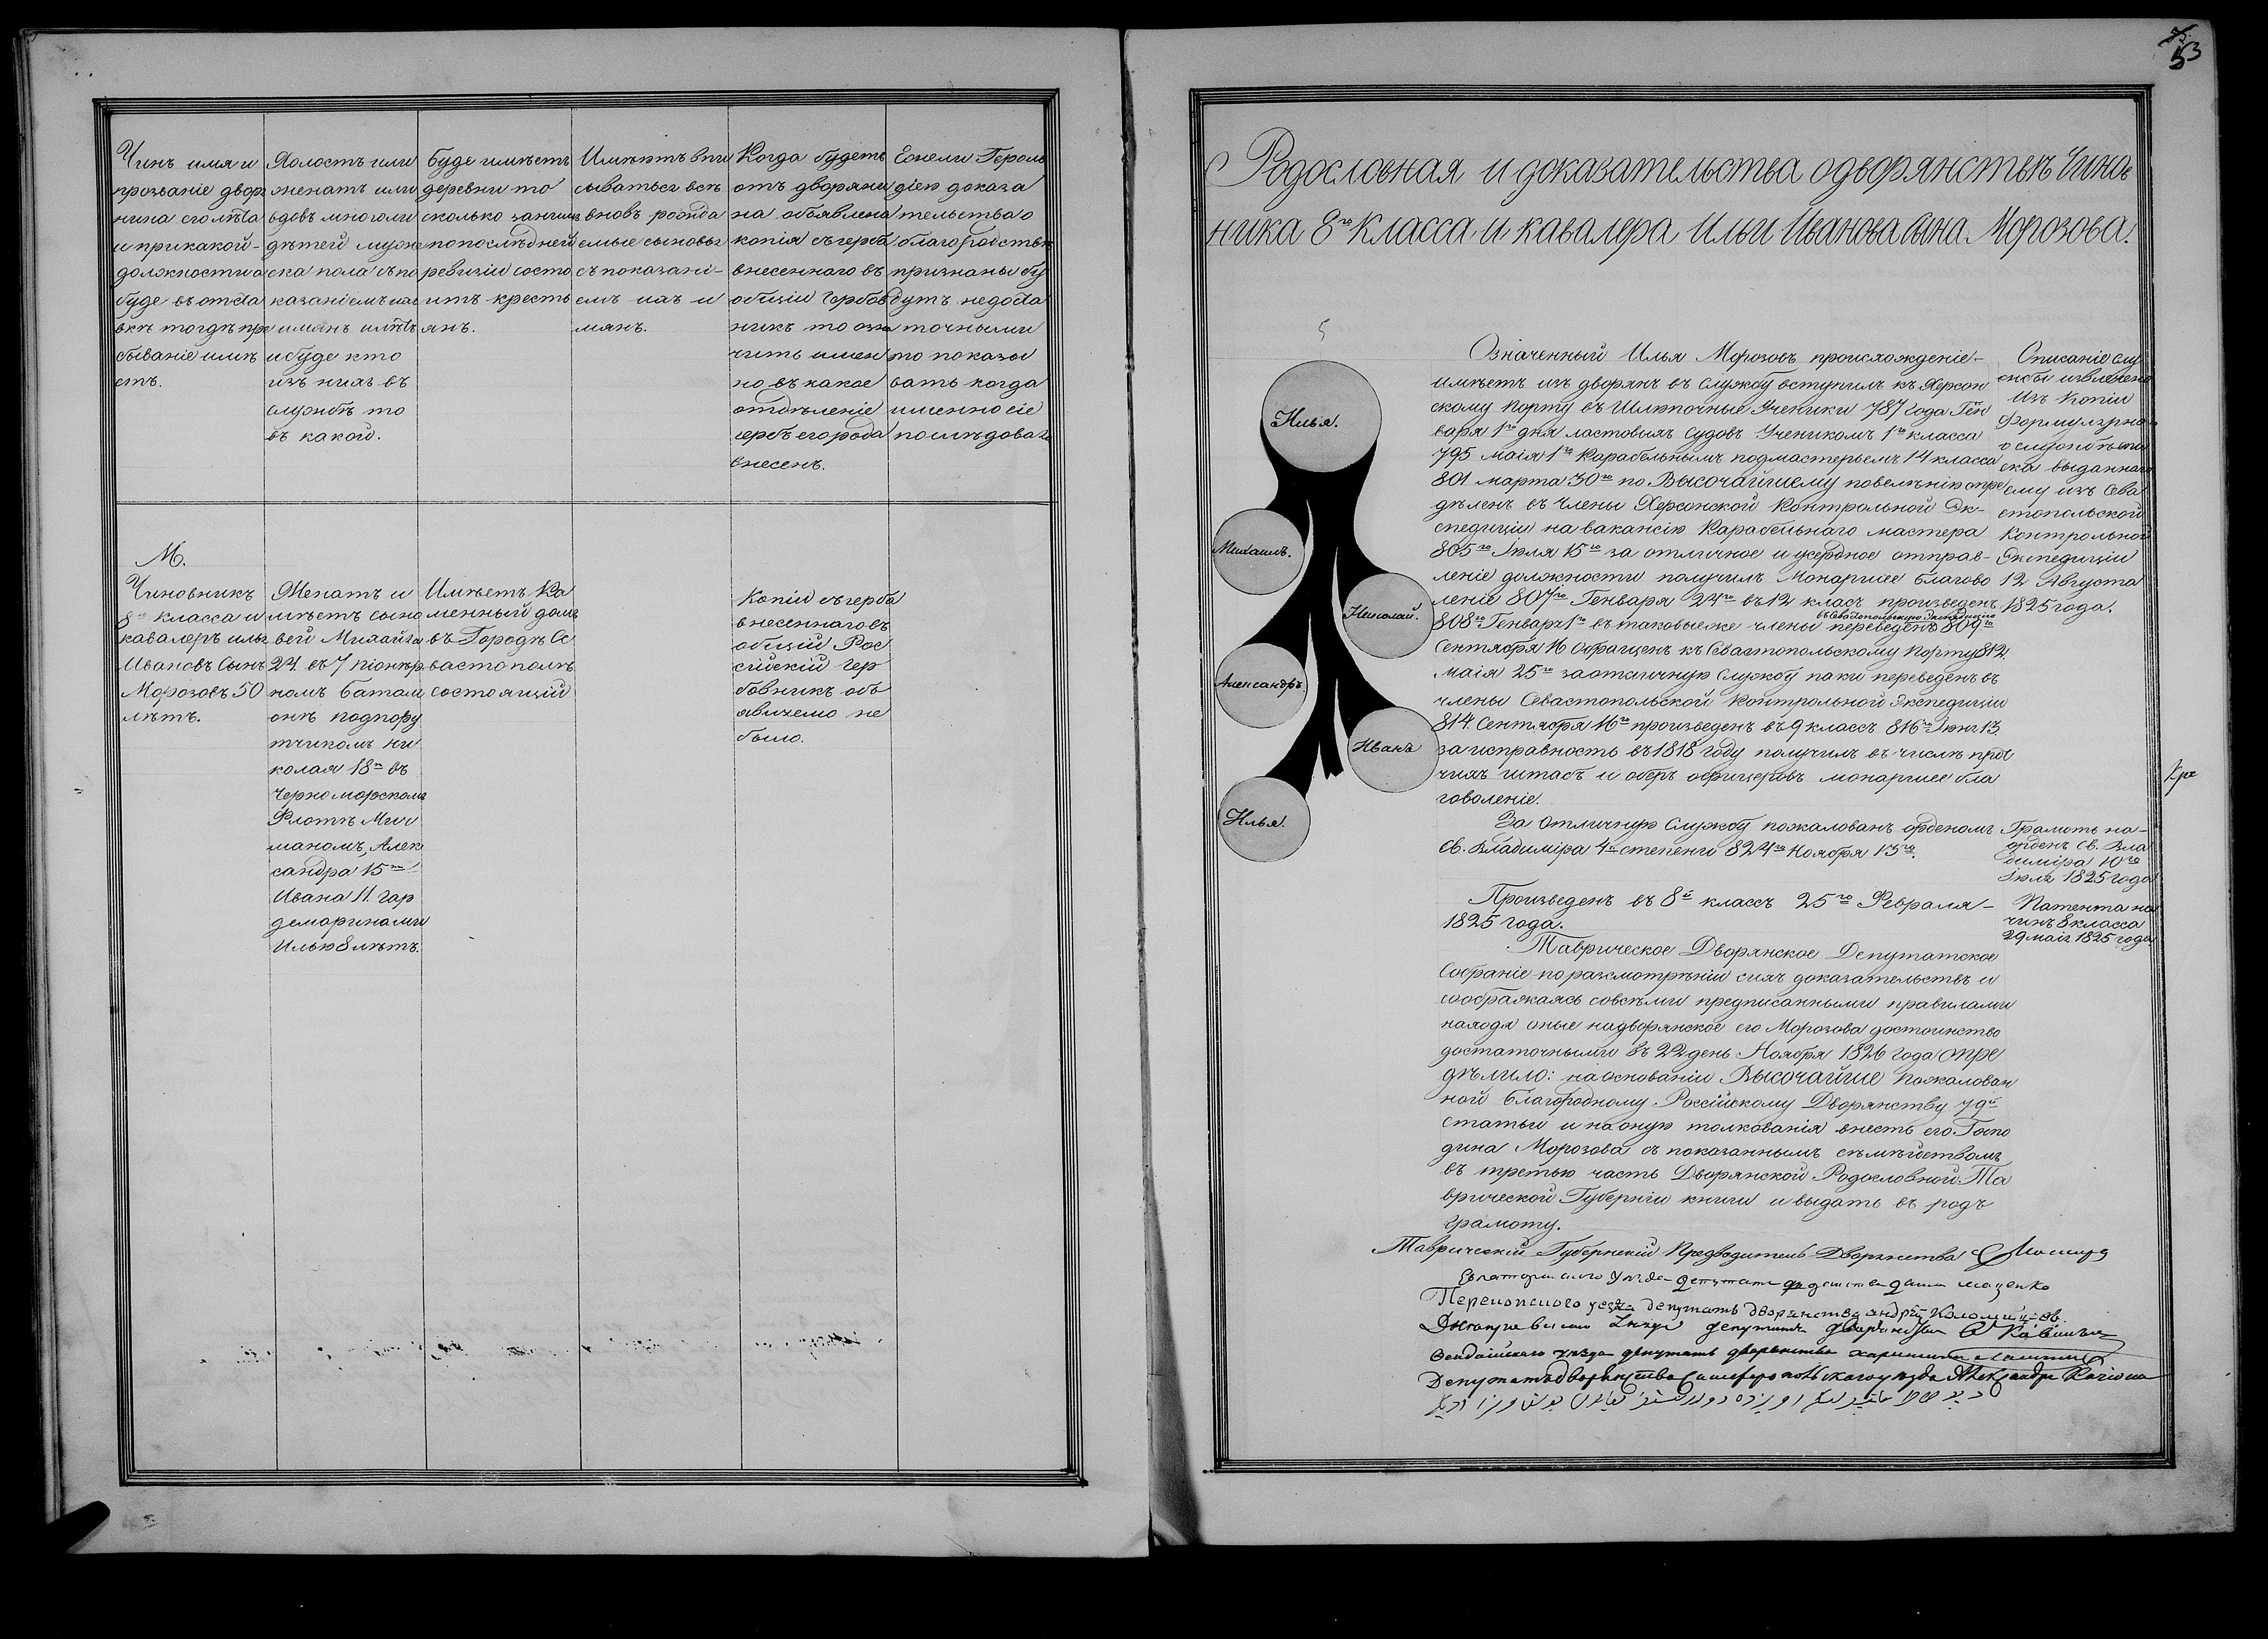 Чинъ имя и
прозваніе дворя
нина его лѣта
и при какой-
должности а
буде въ отста
вкѣ то гдѣ пре
бываніе имѣ
етъ.
Холостъ или
женатъ или
вдовъ много ли
дѣтей муже
ска пола съ по
казаніемъ ихъ
имянъ и лѣтъ
и буде кто
изъ нихъ въ
службѣ то
въ какой.
Буде имѣетъ
деревни то
сколько за нимъ
по последней
ревизіи состо
итъ кресть
янъ.
Имѣютъ впи
сываться всѣ
вновь рожда
емые сыновья
съ показані-
емъ ихъ и
мянъ.
Когда будетъ
отъ дворяни
на объявлена
копія съ герба
внесеннаго въ
общій Гербов
никъ то озна
чить имен
но въ какое
отдѣленіе
гербъ его рода
внесенъ.
Ежели Героль
діею доказа
тельства о
благородствѣ
признаны бу
дутъ недоста
точными
то показы
вать когда
именно сіе
последовало
М.
Чиновникъ
8го класса и
кавалеръ Илья
Ивановъ Сынъ
Морозовъ 50
лѣтъ.
Женатъ и
имѣетъ сыно
вей Михайла
24 въ 7 піонер
номъ Батали
онѣ подпору
тчикомъ Ни
колая 18ти въ
Черноморскомъ
Флотѣ Мич
маномъ, Алек
сандра 15ти
Ивана 11. гар
демаринами
Илью 8 лѣтъ.
Имѣетъ Ка
менный домъ
въ Городѣ Се
вастополѣ
состоящій
Копіи съ герба
внесеннаго въ
общій Рос
сійскій гер
бовникъ объ
явлемо не
было.
53
Родословная и доказательства о дворянствѣ Чинов
ника 8го Класса и кавалера Ильи Иванова Сына Морозова.
Илья.
Михаилъ.
Николай.
Александръ
Иванъ
Илья.
Означенный Илья Морозовъ происхожденіе-
имѣетъ изъ дворянъ въ службу вступилъ къ Херсон
скому Порту въ Шлюпочные Ученики 787 года Ген
варя 1го дня ластовыхъ судовъ Ученикомъ 1го класса
795 маія 1го Карабельнымъ подмастерьемъ 14 класса
801 марта 30го по Высочайшему повелѣнію опре
дѣленъ въ Члены Херсонской Контрольной Эк-
спедиціи на вакансію Карабельнаго мастера
805го Іюля 15го за отличное и усердное отправ-
леніе должности получилъ Монаршее благово
леніе 807го Генваря 24го въ 12 класъ произведенъ
въ Севастопольскую Экспедицію
808го Генваря 1го въ таковые же члены переведенъ 809го
Сентября 16 обращенъ къ Севастопольскому Порту 812.
маія 25го за отличную службу паки переведенъ въ
члены Севастопольской Контрольной Экспедиціи
814 Сентября 16го произведенъ въ 9 классъ 816го Іюня 13.
за исправность въ 1818 году получилъ въ числѣ про
чихъ штабъ и оберъ офицеровъ монаршее бла
говоленіе.
За отличную Службу пожалованъ орденомъ
Св. Владиміра 4й степени 824го Ноября 15го.
Произведенъ въ 8й классъ 25го Февраля-
1825 года.
Таврическое Дворянское Депутатское
Собраніе по разсмотрѣніи сихъ доказательствъ и
соображаясь со всѣми предписанными правилами
находя оные на дворянское его Морозова достоинство
достаточными въ 22 день Ноября 1826 года опре
дѣлило: на основаніи Высочайше пожалован
ной благородному Россійскому Дворянству 79й
статьи и на оную толкованія внесть его Госпо
дина Морозова съ показаннымъ семѣйствомъ
въ третью часть Дворянской Родословной Та
врической Губерніи книги и выдать въ родъ
грамоту.
Описаніе слу
жбы извлечено
изъ Копіи
Формулярна
о службѣ спи
ска выданнаго
ему изъ Сева
стопольской
Контрольной
Экспедиціи
12 Августа
1825 года.
Грамотъ на-
орденъ Св. Вла
диміра 10го
Іюля 1825 года
Патента на
чинъ 8 класса
29 маія 1825 года
Кре
Таврическій Губернскій Предводитель Дворянства
уѣзда депутатъ
Перекопского уезда депутатъ дворянства андрей Коломийцовъ.
депутатъ дворянства
уѣзда депутатъ дворянства
Депутатъ дворянства Симферопольскаго уѣзда Александръ